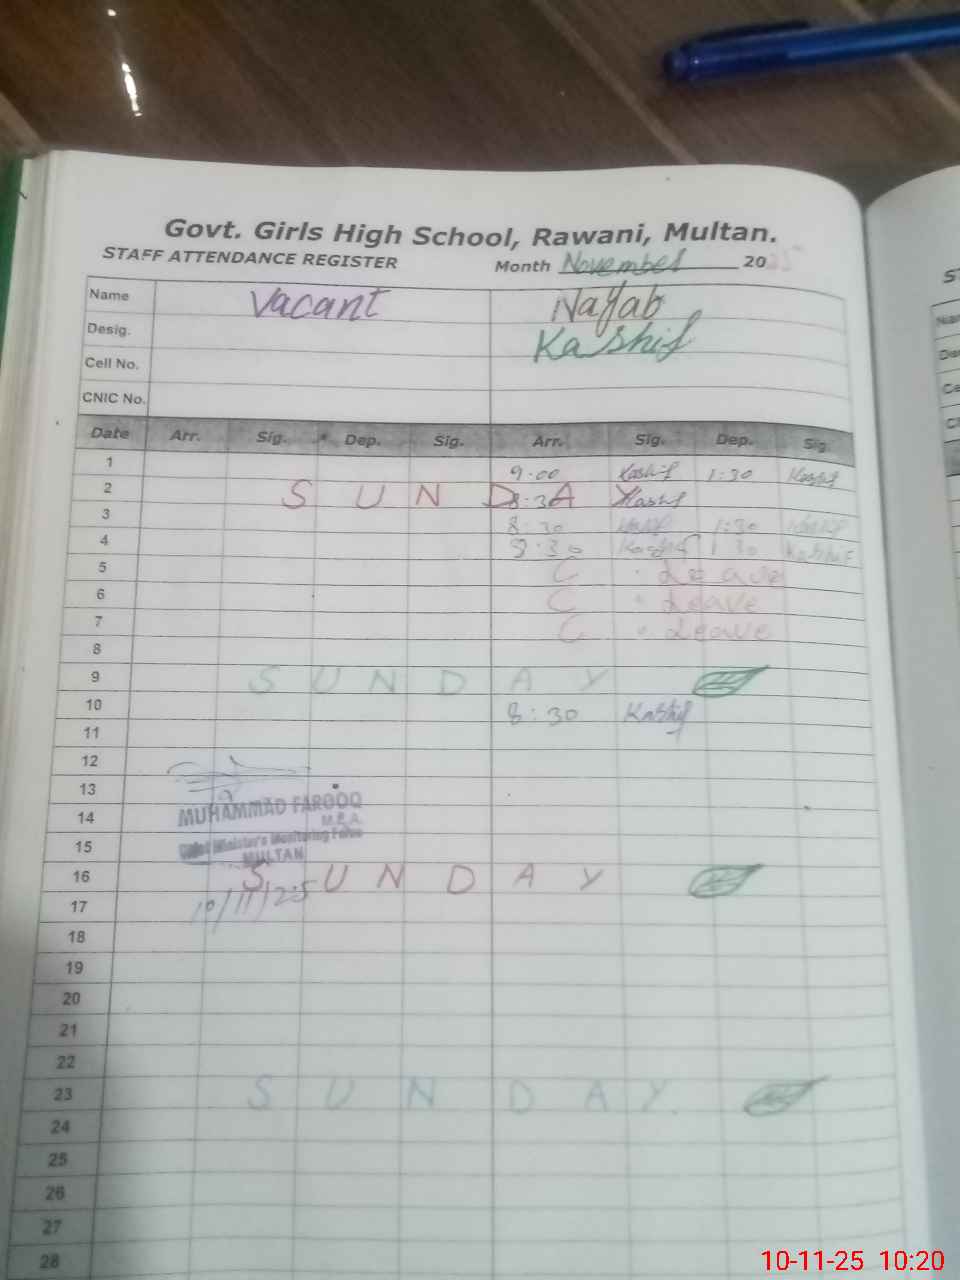 Govt. Girls High School, Rawani, Multan.
STAFF ATTENDANCE REGISTER Month November 2025
Name Vacant Nayab
Desig. Kashif
Cell No.
CNIC No.
Date Arr. Sig. Dep. Sig. Arr. Sig. Dep. Sig.
1 9.00 Kashif 1:30 Kashif
2 S U N D A Y 8:30 Kashif
3 8:30 1:30
4 8:30 Kashif 1:30 Kashif
5 C. Leave
6 C. Leave
7 C. Leave
8
9 S U N D A Y
10 8:30 Kashif
11
12
13
14
MUHAMMAD FAROOQ
M.E.A.
15
Chief Minister's Monitoring Force
MULTAN
16 S U N D A Y
10/11/25
17
18
19
20
21
22
23 S U N D A Y
24
25
26
27
28
10-11-25 10:20